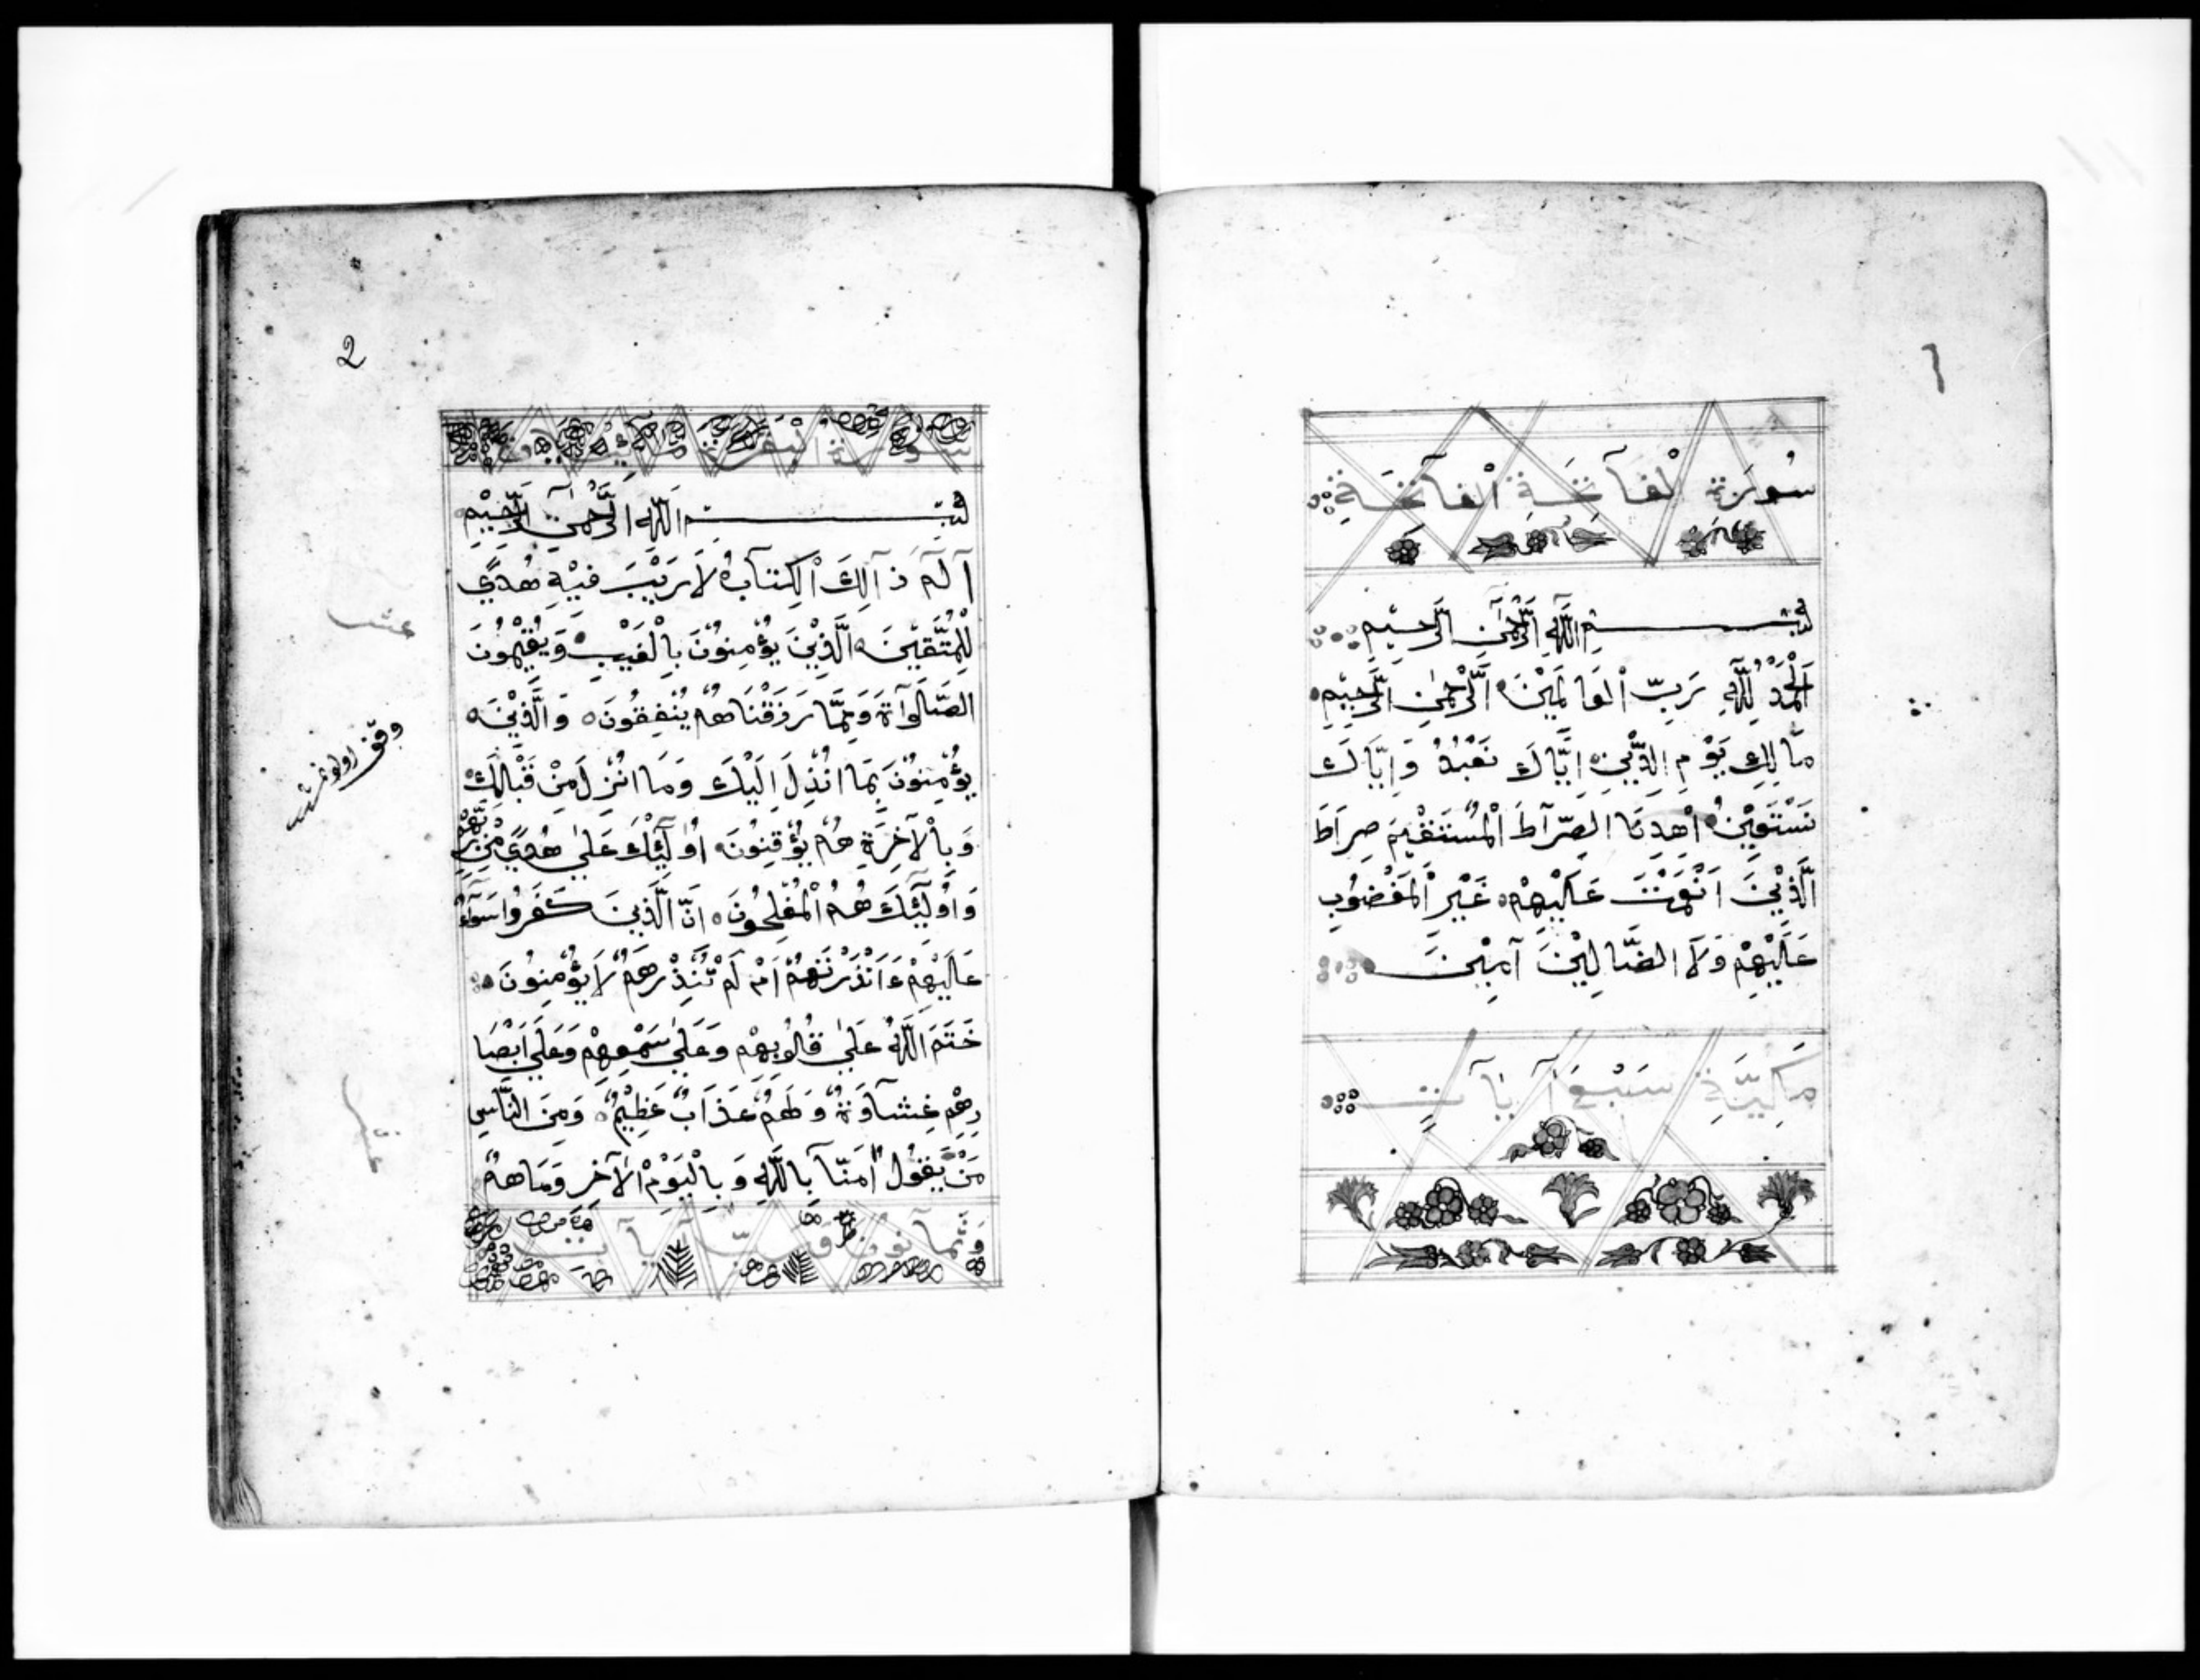 سُورَةُ الْفَاتِحَةِ الْفَاتِحَةِ
بِسْمِ اللّٰهِ الرَّحْمٰنِ الرَّحِيْمِ
اَلْحَمْدُ لِلّٰهِ رَبِّ الْعَالَمِيْنَ الرَّحْمٰنِ الرَّحِيْمِ
مَالِكِ يَوْمِ الدِّيْنِ اِيَّاكَ نَعْبُدُ وَاِيَّاكَ
نَسْتَعِيْنُ اهْدِنَا الصِّرَاطَ الْمُسْتَقِيْمَ صِرَاطَ
الَّذِيْنَ اَنْعَمْتَ عَلَيْهِمْ غَيْرِ الْمَغْضُوبِ
عَلَيْهِمْ وَلَا الضَّالِيْنَ آمِيْنَ
مَكِيَّةِ سَبْعَ آيَات
2
سورة البقرة
بِسْمِ اللّٰهِ الرَّحْمٰنِ الرَّحِيْمِ
آلمٓ ذَآلِكَ الْكِتَآبُ لَا رَيْبَ فِيْهِ هُدًي
لِلْمُتَّقِيْنَ الَّذِيْنَ يُؤْمِنُوْنَ بِالْغَيْبِ وَيُقِيْمُونَ
الصَّلَوآةَ وَمِمَّا رَزَقْنَاهُمْ يُنْفِقُونَ وَالَّذِيْنَ
يُؤْمِنُوْنَ بِمَا اُنْزِلَ اِلَيْكَ وَمَا اُنْزِلَ مِنْ قَبْلِكَ
وَبِالْآخِرَةِ هُمْ يُؤْقِنُوْنَ اُوْلَئِكَ عَلٰي هُدًي مِنْ رَبِّهِمْ
وَاُوْلَئِكَ هُمُ الْمُفْلِحُوْنَ اِنَّ الَّذِيْنَ كَفَرُوا سَوَآءٌ
عَلَيْهِمْ ءَاَنْذَرْتَهُمْ اَمْ لَمْ تُنْذِرْهُمْ لَا يُؤْمِنُونَ
خَتَمَ اللّٰهُ عَلٰي قُلُوْبِهِمْ وَعَلٰي سَمْعِهِمْ وَعَلٰي اَبْصَا
رِهِمْ غِشَاوَةٌ وَلَهُمْ عَذَابٌ عَظِيْمٌ وَمِنَ النَّاسِ
مَنْ يَقُوْلُ اٰمَنَّا بِاللّٰهِ وَبِالْيَوْمِ الْآخِرِ وَمَا هُمْ
وثمانون آيات
عشر
وقف